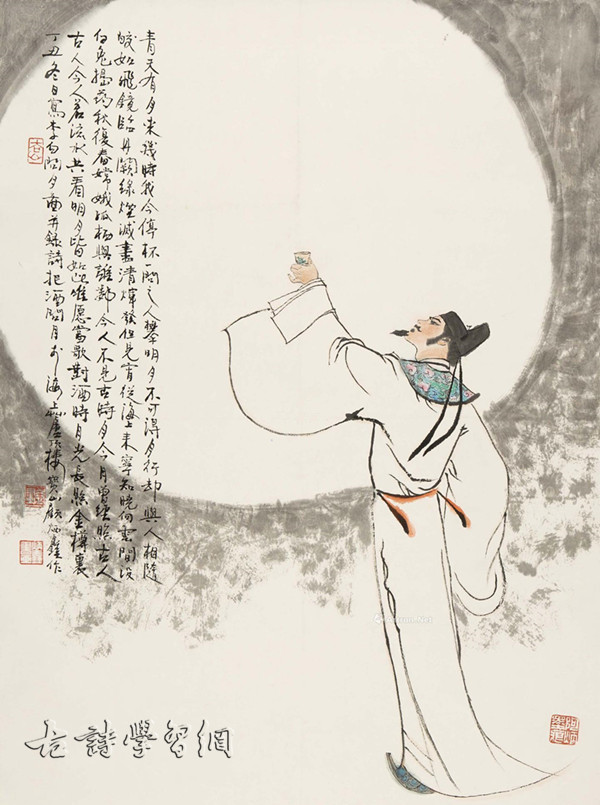 青天有月来幾時我今停杯一問之人攀明月不可得月行却與人相隨
皎如飛鏡臨丹闕緑煙滅盡清輝發但見宵從海上来寧知曉向雲間没
白兔搗藥秋復春嫦娥孤栖與誰鄰今人不見古時月今月曾經照古人
古人今人若流水共看明月皆如此唯愿當歌對酒時月光長照金樽裏
丁丑冬日寫李白問月圖并錄詩把酒問月於海上樓寶山顧炳鑫作
古詩學習網